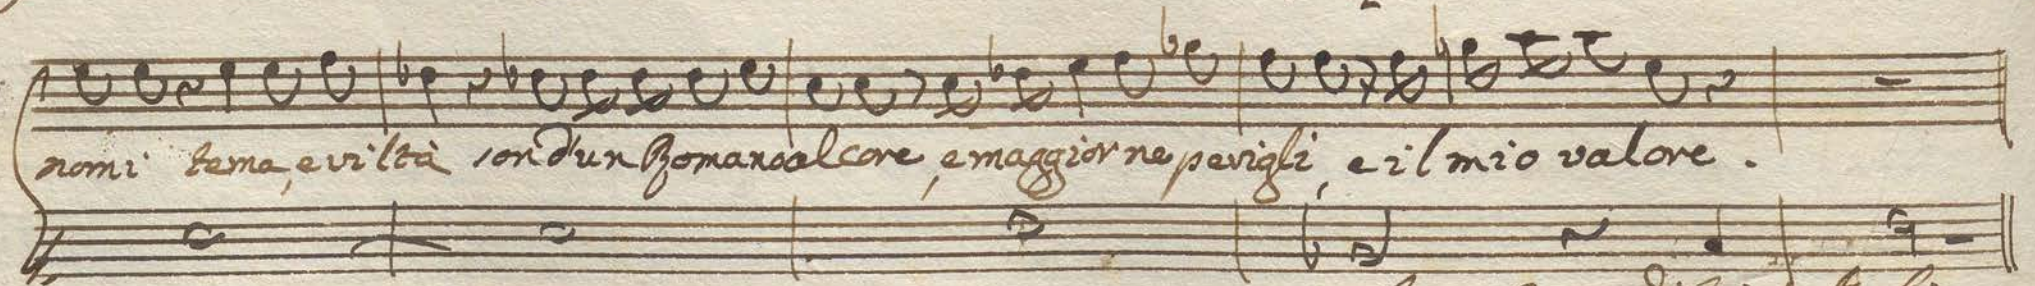 nomi tema, e viltà son d'un Romano al core, e maggior ne perigli, e il mio valore.